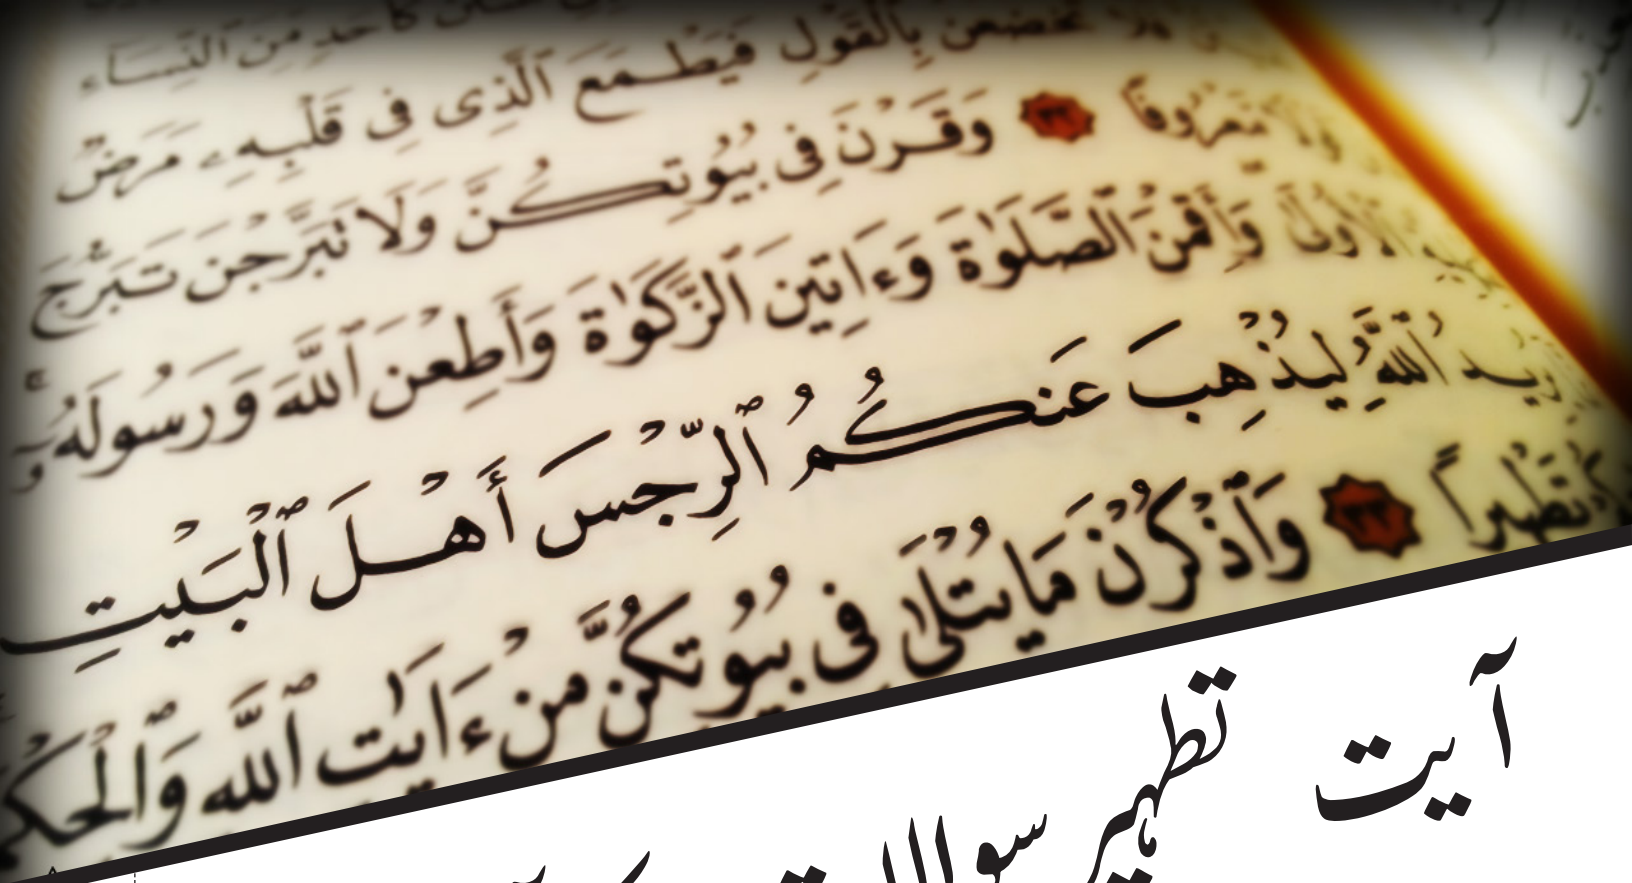 كَأَحَدٍ مِّنَ ٱلنِّسَاءِ
تَخْضَعْنَ بِٱلْقَوْلِ فَيَطْمَعَ ٱلَّذِى فِى قَلْبِهِۦ مَرَضٌ
مَّعْرُوفًا ٣٢ وَقَرْنَ فِى بُيُوتِكُنَّ وَلَا تَبَرَّجْنَ تَبَرُّجَ
ٱلْأُولَىٰ وَأَقِمْنَ ٱلصَّلَوٰةَ وَءَاتِينَ ٱلزَّكَوٰةَ وَأَطِعْنَ ٱللَّهَ وَرَسُولَهُۥٓ
يُرِيدُ ٱللَّهُ لِيُذْهِبَ عَنكُمُ ٱلرِّجْسَ أَهْلَ ٱلْبَيْتِ
تَطْهِيرًا ٣٣ وَٱذْكُرْنَ مَا يُتْلَىٰ فِى بُيُوتِكُنَّ مِنْ ءَايَٰتِ ٱللَّهِ وَٱلْحِكْمَ
آیت تطہیر